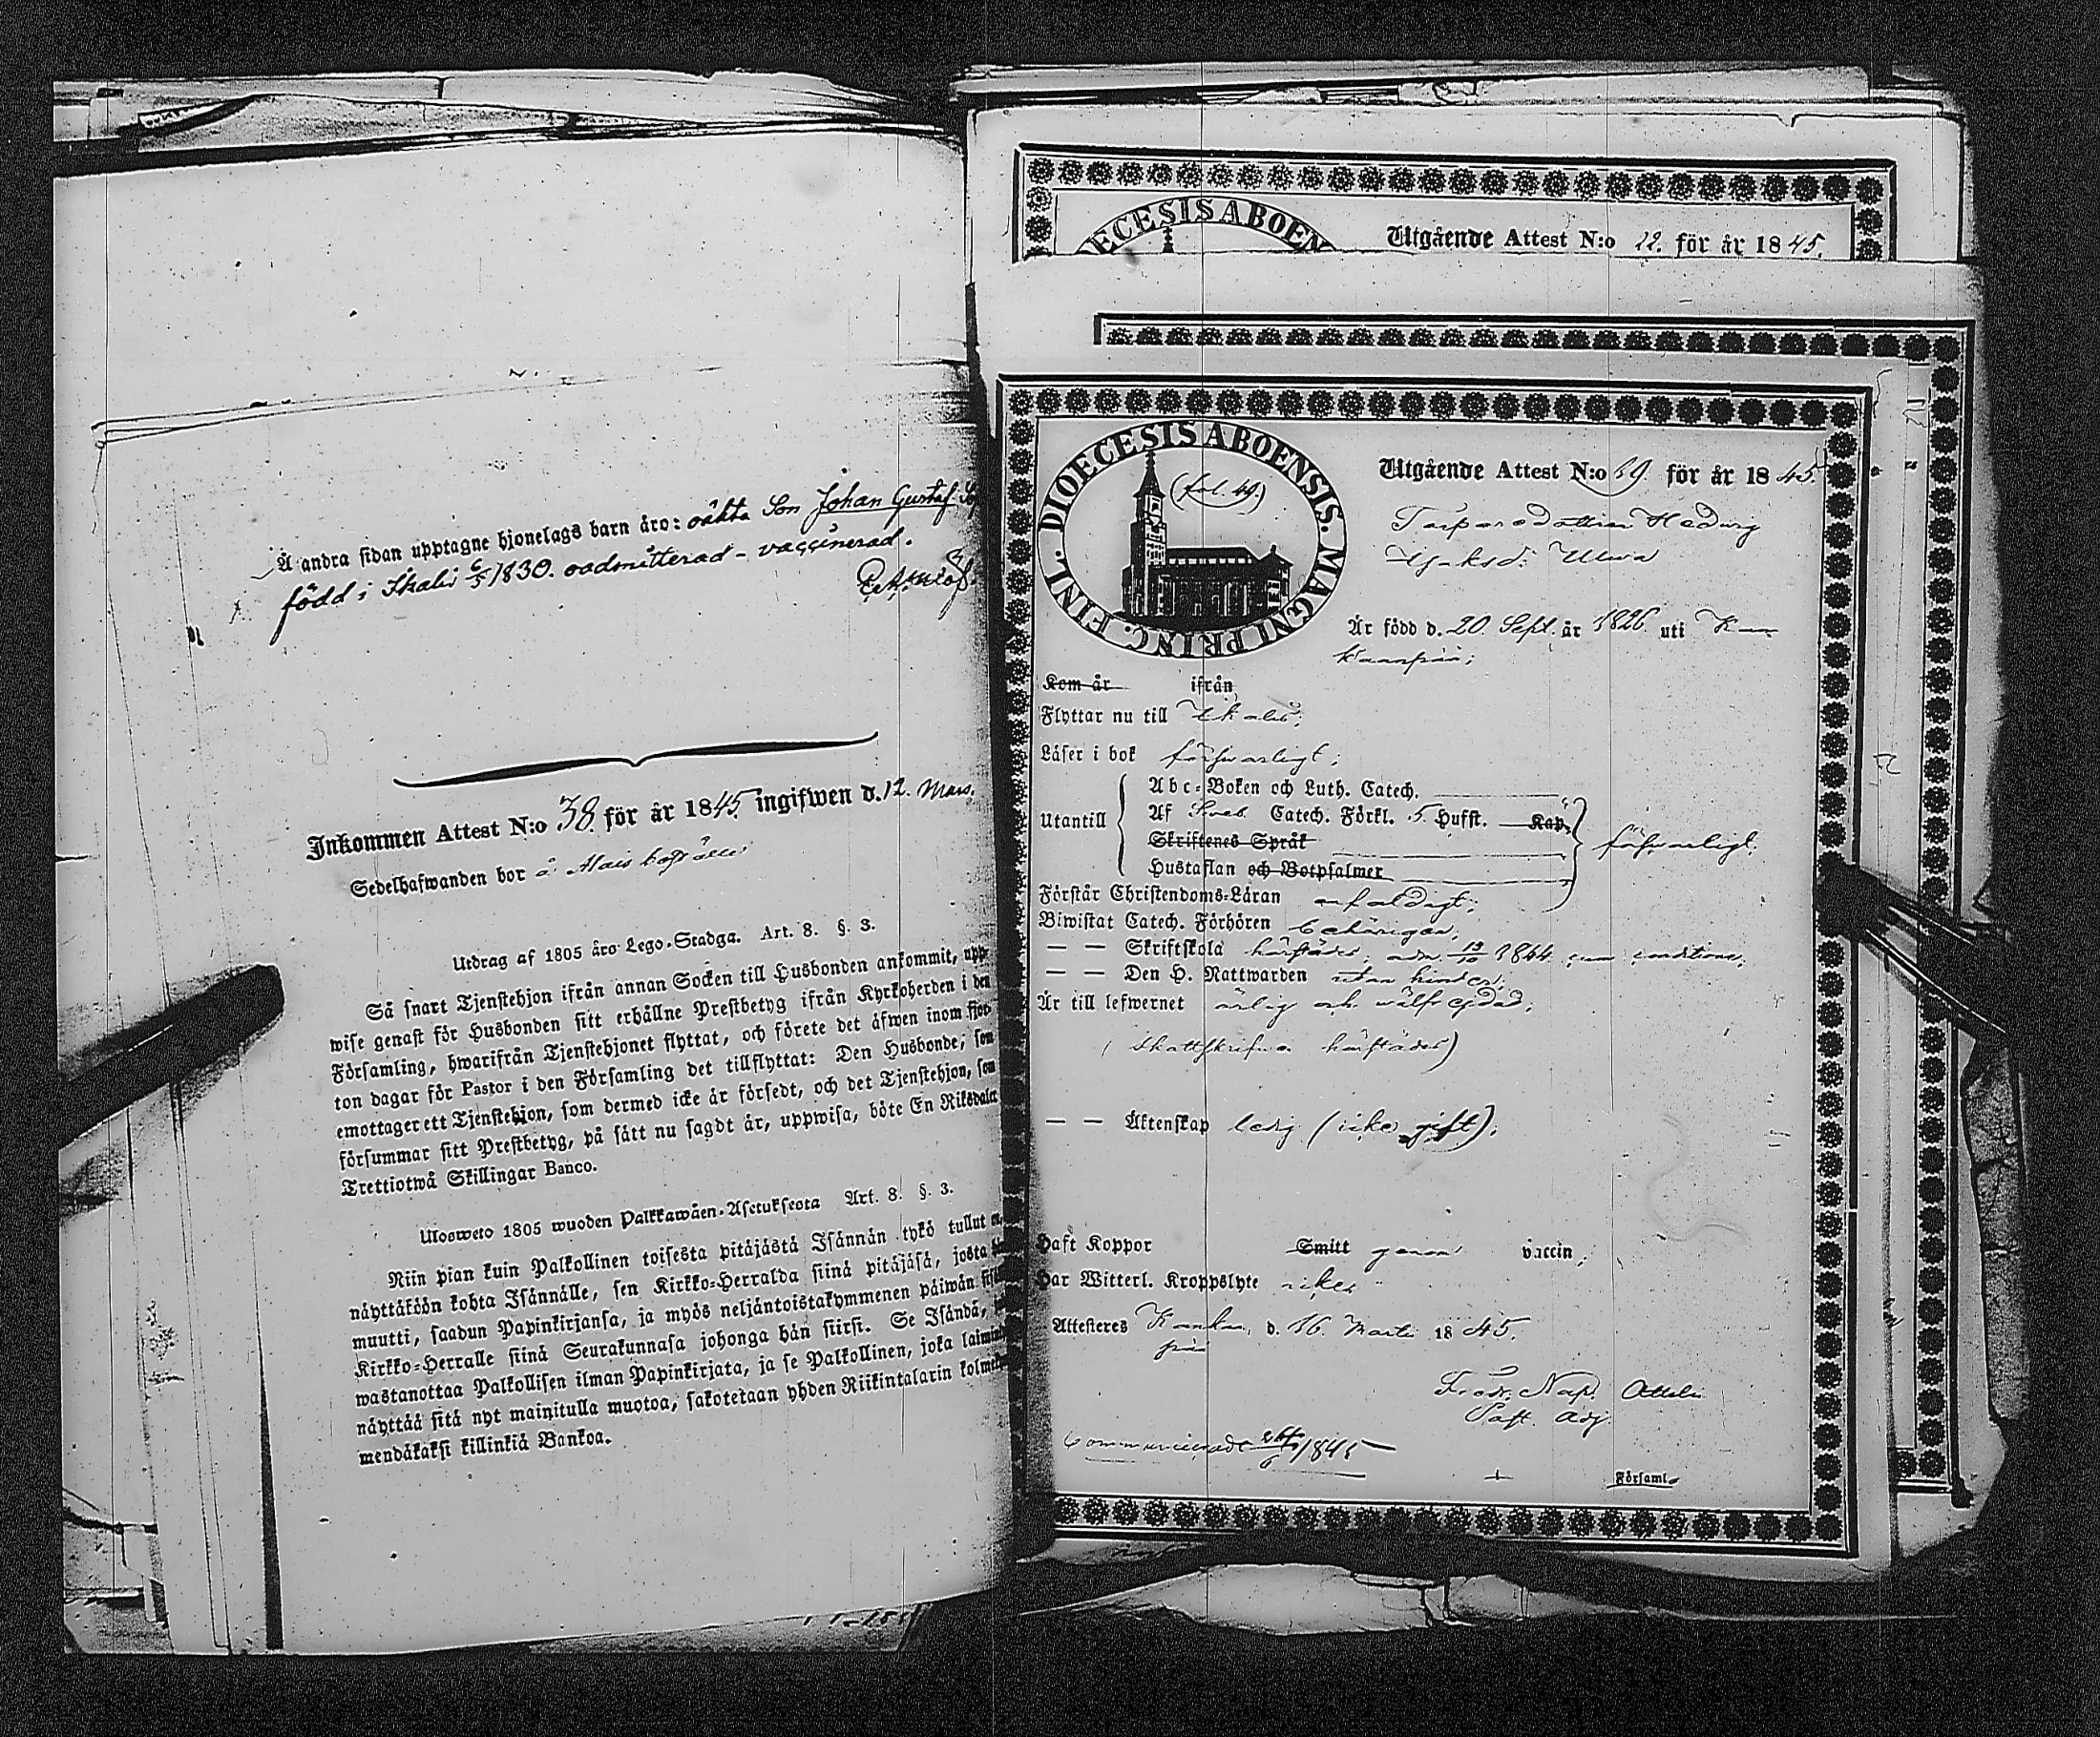 Å andra sidan upptagne hjonelags barn äro: oäkta Son Johan Gustaf
född i Ikalis 6/5 1830. oadmitterad - vaccinerad.
Inkommen Attest N:o 38 för år 1845 ingifwen d. 12. Mars.
Sedelhafwanden bor å
Utdrag af 1805 års Lego-Stadga. Art. 8. §. 3.
Så snart Tjenstehjon ifrån annan Socken till Husbonden ankommit, upp-
wise genast för Husbonden sitt erhållne Prestbetyg ifrån Kyrkoherden i den
Församling, hwarifrån Tjenstehjonet flyttat, och förete det äfwen inom fjor-
ton dagar för Pastor i den Församling det tillflyttat: Den Husbonde, som
emottager ett Tjenstehjon, som dermed icke är försedt, och det Tjenstehjon, som
försummar sitt Prestbetyg, på sätt nu sagdt är, uppwisa, böte En Riksdaler
Trettiotwå Skillingar Banco.
Ulosweto 1805 wuoden Palkkawäen-Asetuksesta Art. 8. §. 3.
Niin pian kuin Palkollinen toisesta pitäjästä Isännän tykö tullut
näyttäköön kohta Isännälle, sen Kirkko-Herralda siinä pitäjäsä, josta
muutti, saadun Papinkirjansa, ja myös neljäntoistakymmenen päiwän
Kirkko-Herralle siinä Seurakunnasa johonga hän siirsi. Se Isändä,
wastanottaa Palkollisen ilman Papinkirjata, ja se Palkollinen, joka
näyttää sitä nyt mainitulla muotoa, sakotetaan yhden Riikintalarin
mendäkaksi killinkiä Bankoa.
DIOECESIS ABOEN
Utgående Attest N:o 22. för år 1845.
DIOECESIS ABOENSIS. MAGNI PRINC. FINL.
(fol. 49.)
Utgående Attest N:o 59. för år 1845.
Torparedottren Hedvig
Ulrica
Är född d. 20. Sept. år 1826. uti
Kom år ifrån
Flyttar nu till Ikalis;
Läser i bok försvarligt;
Utantill
Abc-Boken och Luth. Catech.
Af Sveb. Catech. Förkl. 5. Hufst. Kap.
Skriftenes Språk
försvarligt;
Hustaflan och Botpsalmer
Förstår Christendoms-Läran enfaldigt;
Biwistat Catech. Förhören behörigen,
— — Skriftskola härstädes; adm. 1844 cum conditione;
— — Den H. Nattwarden utan hinder;
Är till lefwernet ärlig och wälfrejdad;
(Skattskrifven härstädes)
— — Äktenskap ledig (icke gift);
Haft Koppor Smitt genom vaccin;
Har Witterl. Kroppslyte icke
Attesteras d. 16. Martii 1845.
Fredr. Nap.
Past. Adj.
Communicerade 1845
Församl.